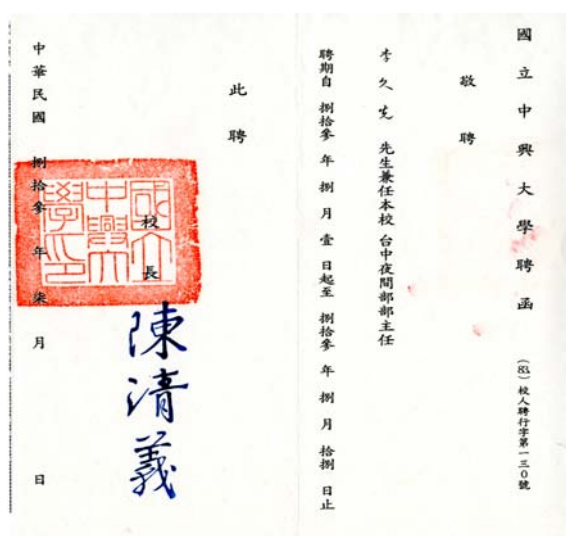 國立中興大學聘函 (83)校人聘行字第一三0號
敬聘
李久先 先生兼任本校台中夜間部部主任
聘期自捌拾參年捌月壹日起至捌拾參年捌月拾捌日止
此聘
校長 陳清義
國立中興大學印
中華民國捌拾參年柒月 日